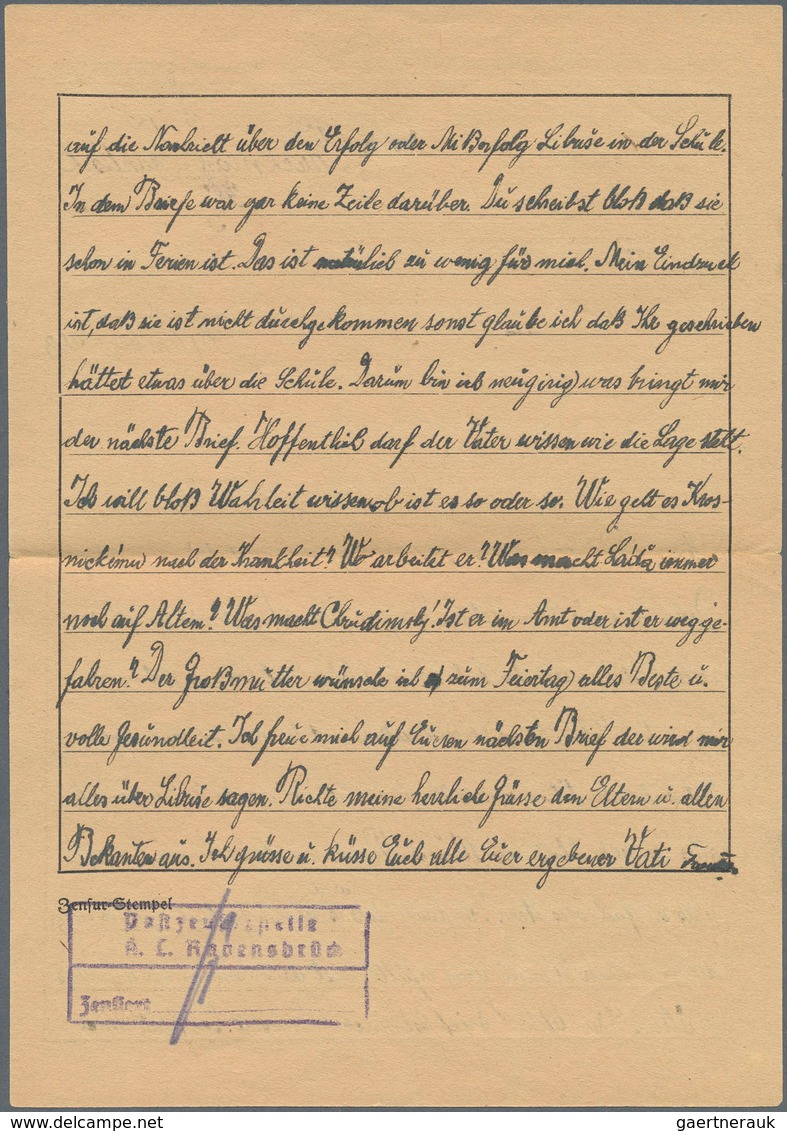 auf die Nachricht über den Erfolg oder Mißerfolg Libuše in der Schule.
In dem Briefe war gar keine Zeile darüber. Du scheibst bloß daß sie
schon in Ferien ist. Das ist natürlich zu wenig für mich. Mein Eindruck
ist, daß sie ist nicht durchgekommen sonst glaube ich daß Ihr geschrieben
hättet etwas über die Schule. Darum bin ich neugirig was bringt mir
der nächste Brief. Hoffentlich darf der Vater wissen wie die Lage steht.
Ich will bloß Wahheit wissen ob ist es so oder so. Wie geht es Kros-
nickému nach der Krankheit? Wo arbeitet er? Was macht Láďa immer
noch auf Altem? Was macht Chrudimský! Ist er im Amt oder ist er wegge-
fahren? Der Großmutter wünsche ich zum Feiertag alles Beste u.
volle Gesundheit. Ich freue mich auf Eueren nächsten Brief der wird mir
alles über Libuše sagen. Richte meine herrliche Grüsse den Eltern u. allen
Bekanten aus. Ich grüsse u. küsse Euch alle Euer ergebener Vati
Zensur-Stempel
Postzensurstelle
K. L. Ravensbrück
Zensiert
gaertnerauk